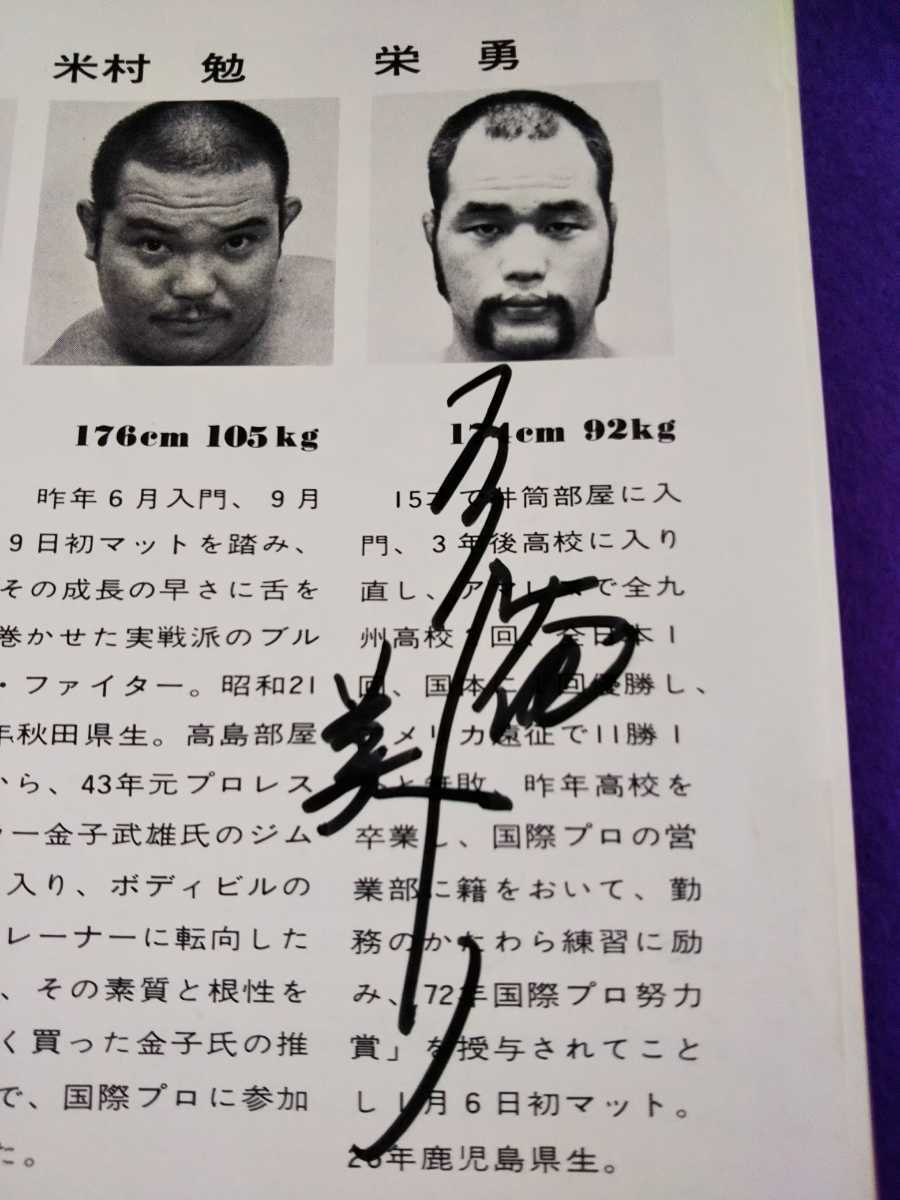 米村 勉
176cm 105kg
昨年6月入門、9月
9日初マットを踏み、
その成長の早さに舌を
巻かせた実戦派のブル
・ファイター。昭和21
年秋田県生。高島部屋
から、43年元プロレス
ラー金子武雄氏のジム
入り、ボディビルの
レーナーに転向した
、その素質と根性を
く買った金子氏の推
で、国際プロに参加
た。
栄 勇
174cm 92kg
15才で井筒部屋に入
門、3年後高校に入り
直し、アマレスで全九
州高校 回、全日本1
回、国体に1回優勝し、
アメリカ遠征で11勝1
無敗、昨年高校を
卒業し、国際プロの営
業部に籍をおいて、勤
務のかたわら練習に励
み、「72年国際プロ努力
賞」を授与されてこと
し1月6日初マット。
年鹿児島県生。